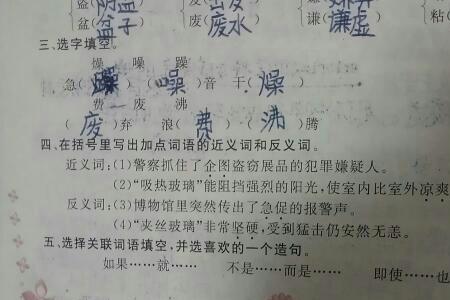 盆(盆子) 废(废水) 谦(谦虚) 粘(
三、选字填空。
燥 噪 躁
急(躁) (噪)音 干(燥)
费 废 沸
(废)弃 浪(费) (沸)腾
四、在括号里写出加点词语的近义词和反义词。
近义词:(1)警察抓住了企图盗窃展品的犯罪嫌疑人。
(2)“吸热玻璃”能阻挡强烈的阳光,使室内比室外凉爽
反义词:(3)博物馆里突然传出了急促的报警声。
(4)“夹丝玻璃”非常坚硬,受到猛击仍安然无恙。
五、选择关联词语填空,并选喜欢的一个造句。
如果……就…… 不是……而是…… 即使……也